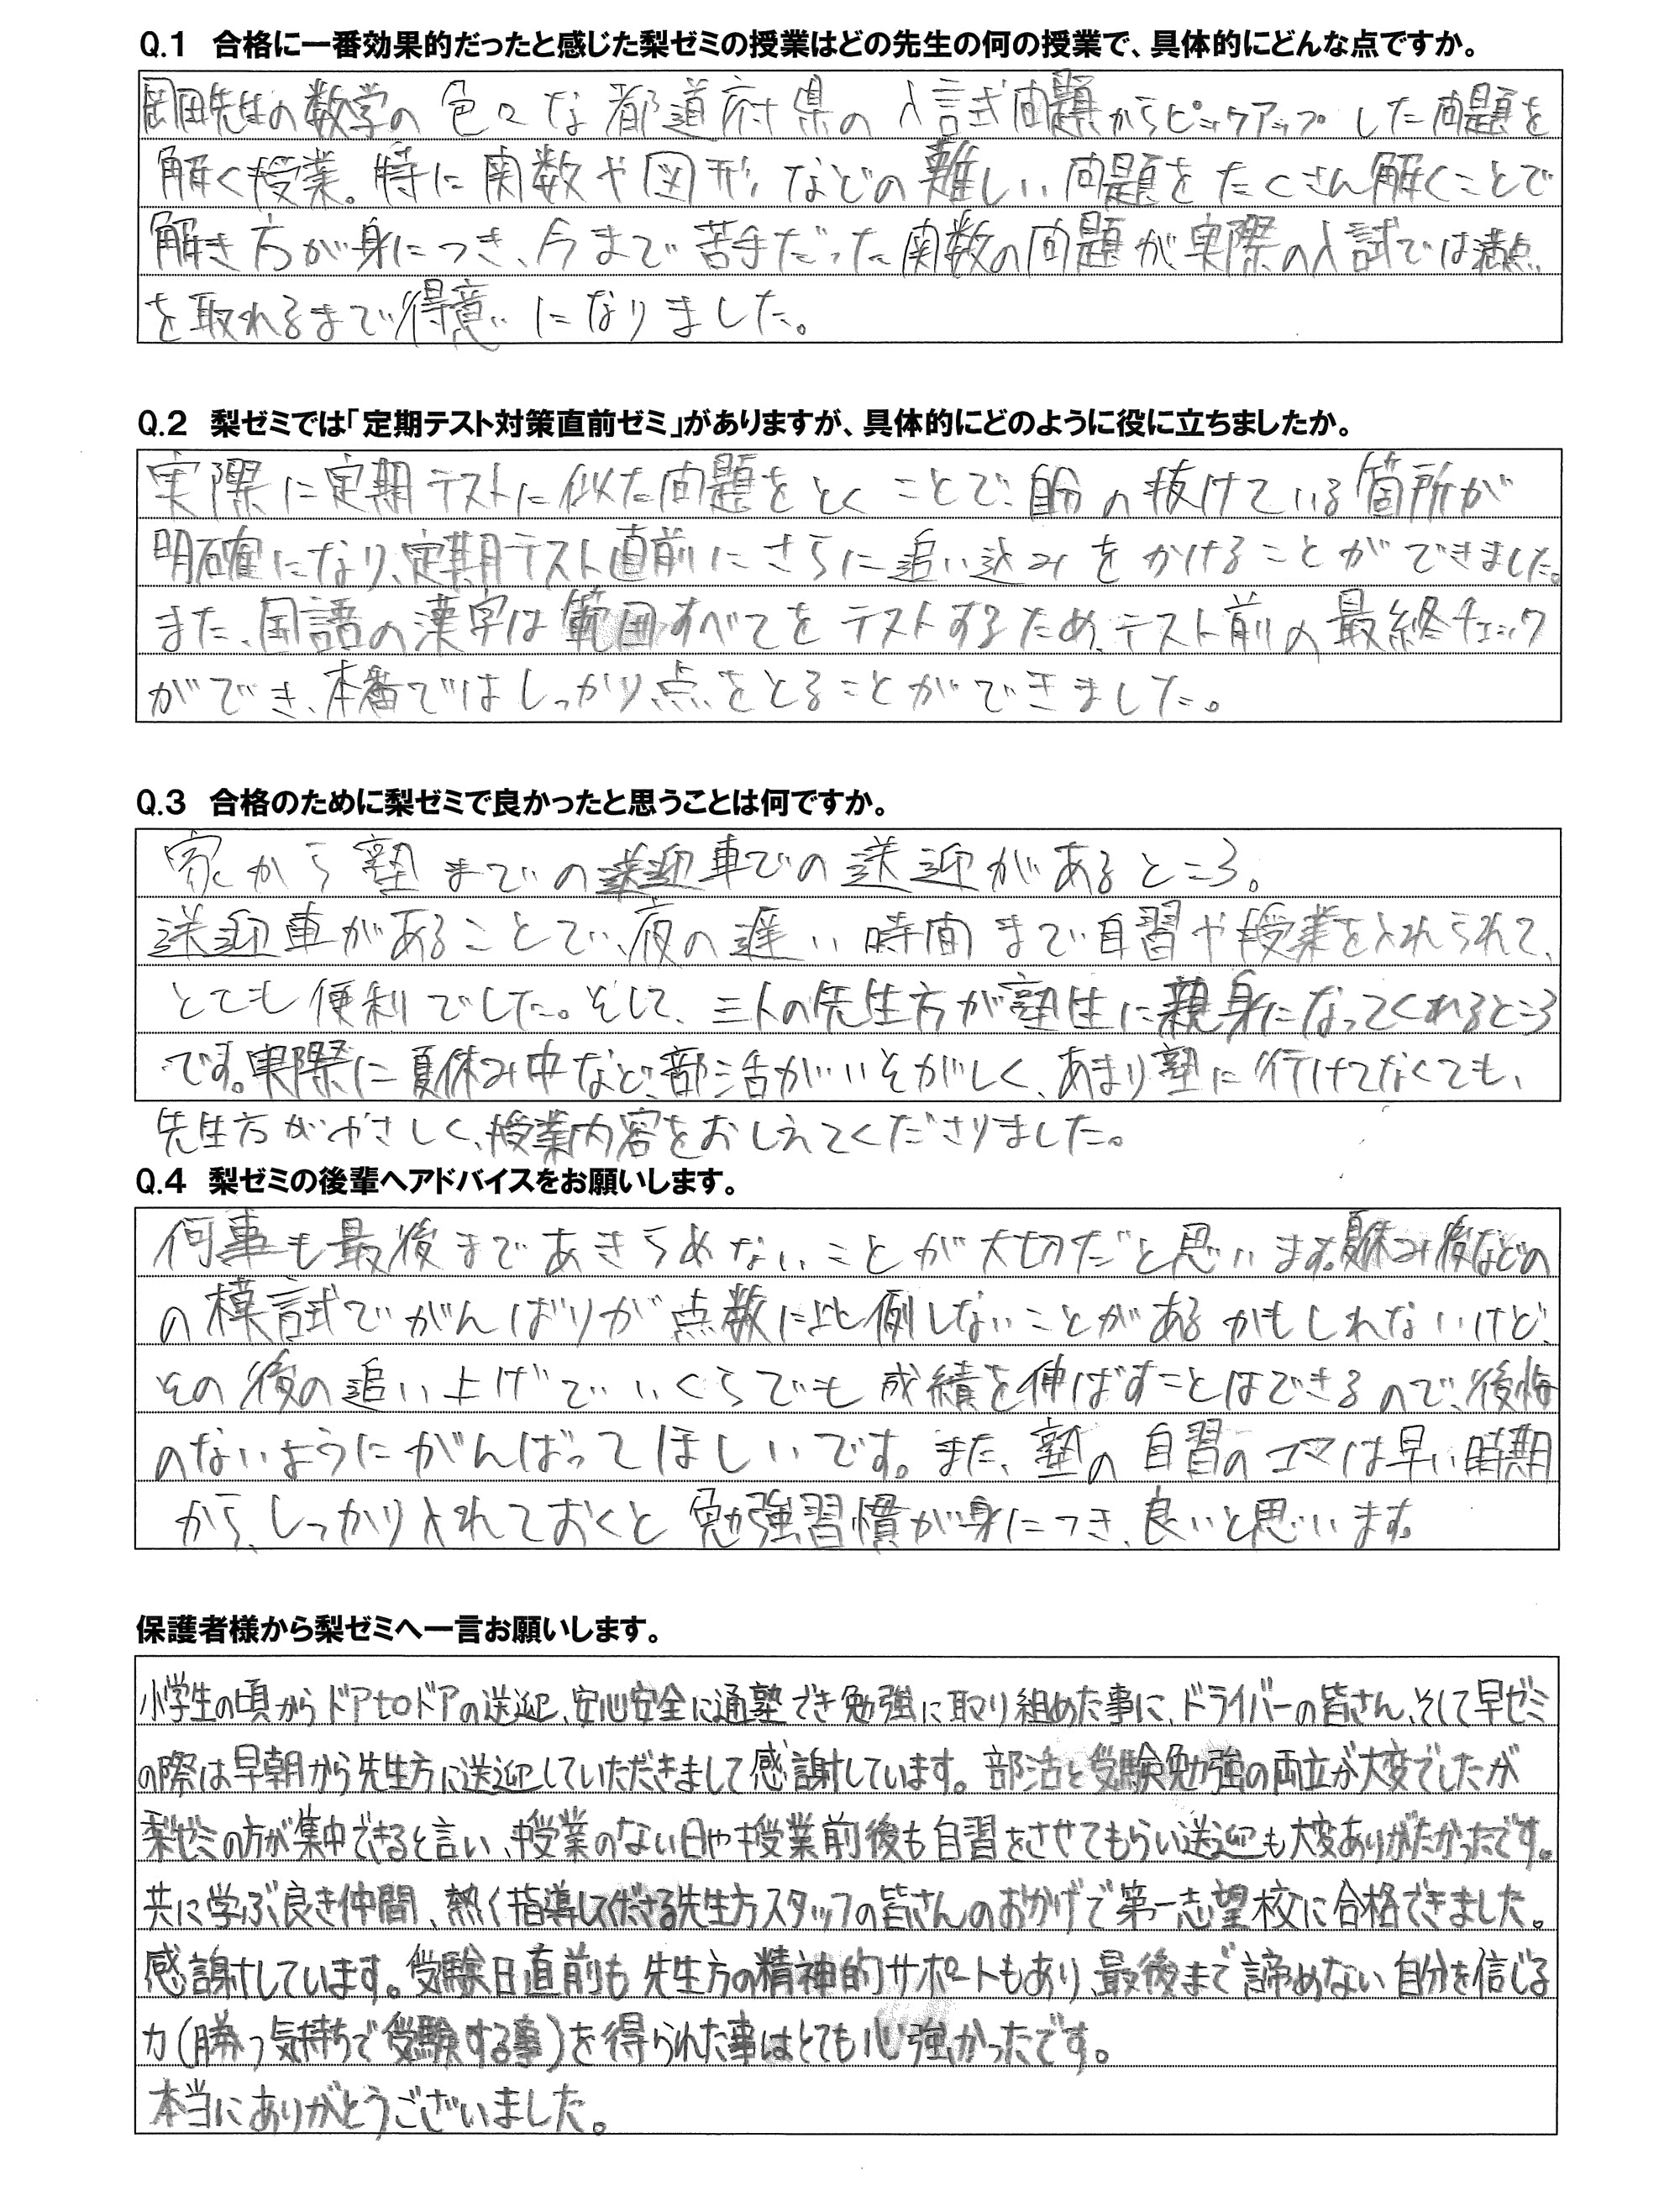 Q.1 合格に一番効果的だったと感じた梨ゼミの授業はどの先生の何の授業で、具体的にどんな点ですか。
岡田先生の数学の色々な都道府県の入試問題からピックアップした問題を
解く授業。特に関数や図形などの難しい問題をたくさん解くことで
解き方が身につき、今まで苦手だった関数の問題が実際の入試では満点
を取れるまで得意になりました。
Q.2 梨ゼミでは「定期テスト対策直前ゼミ」がありますが、具体的にどのように役に立ちましたか。
実際に定期テストに似た問題をとくことで、自分の抜けている箇所が
明確になり、定期テスト直前にさらに追い込みをかけることができました。
また、国語の漢字は範囲すべてをテストするため、テスト前の最終チェック
ができ、本番ではしっかり点をとることができました。
Q.3 合格のために梨ゼミで良かったと思うことは何ですか。
家から塾までの送迎車での送迎があるところ。
送迎車があることで、夜の遅い時間まで自習や授業を入れられて、
とても便利でした。そして、三人の先生方が塾生に親身になってくれるところ
です。実際に夏休み中など、部活がいそがしく、あまり塾に行けてなくても、
先生方がやさしく、授業内容をおしえてくださりました。
Q.4 梨ゼミの後輩へアドバイスをお願いします。
何事も最後まであきらめないことが大切だと思います。夏休み後などの
の模試でがんばりが点数に比例しないことがあるかもしれないけど、
その後の追い上げでいくらでも成績を伸ばすことはできるので、後悔
のないようにがんばってほしいです。また、塾の自習のコマは早い時期
から、しっかり入れておくと勉強習慣が身につき、良いと思います。
保護者様から梨ゼミへ一言お願いします。
小学生の頃からドアtoドアの送迎、安心安全に通塾でき勉強に取り組めた事に、ドライバーの皆さん、そして早ゼミ
の際は早朝から先生方に送迎していただきまして感謝しています。部活と受験勉強の両立が大変でしたが
梨ゼミの方が集中できると言い、授業のない日や授業前後も自習をさせてもらい送迎も大変ありがたかったです。
共に学ぶ良き仲間、熱く指導してくださる先生方スタッフの皆さんのおかげで第一志望校に合格できました。
感謝しています。受験日直前も先生方の精神的サポートもあり、最後まで諦めない自分を信じる
力(勝つ気持ちで受験する事)を得られた事はとても心強かったです。
本当にありがとうございました。